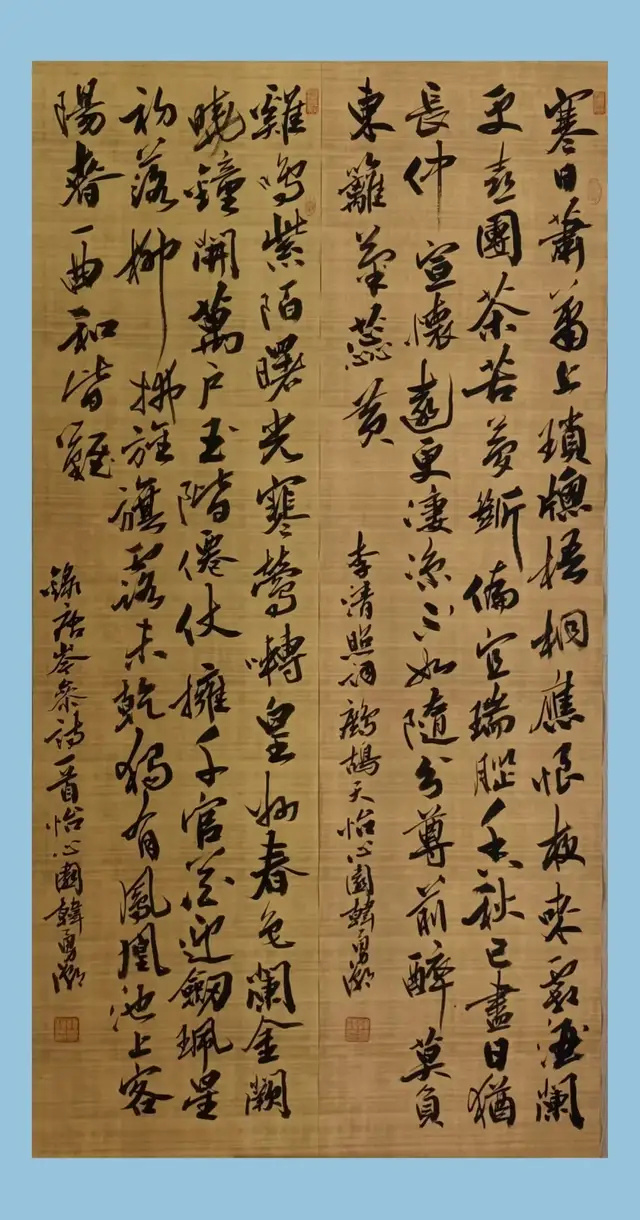 寒日蕭蕭上瑣牕梧桐應恨夜來霜酒闌
更喜團茶苦夢斷偏宜瑞腦香秋已盡日猶
長仲宣懷遠更淒涼不如隨分尊前醉莫負
東籬菊蕊黃
李清照詞鷓鴣天怡心園韓勇
雞鳴紫陌曙光寒鶯囀皇州春色闌金闕
曉鐘開萬戶玉階僊仗擁千官花迎劒珮星
初落柳拂旌旗露未乾獨有鳳凰池上客
陽春一曲和皆難
錄唐岑參詩一首怡心園韓勇